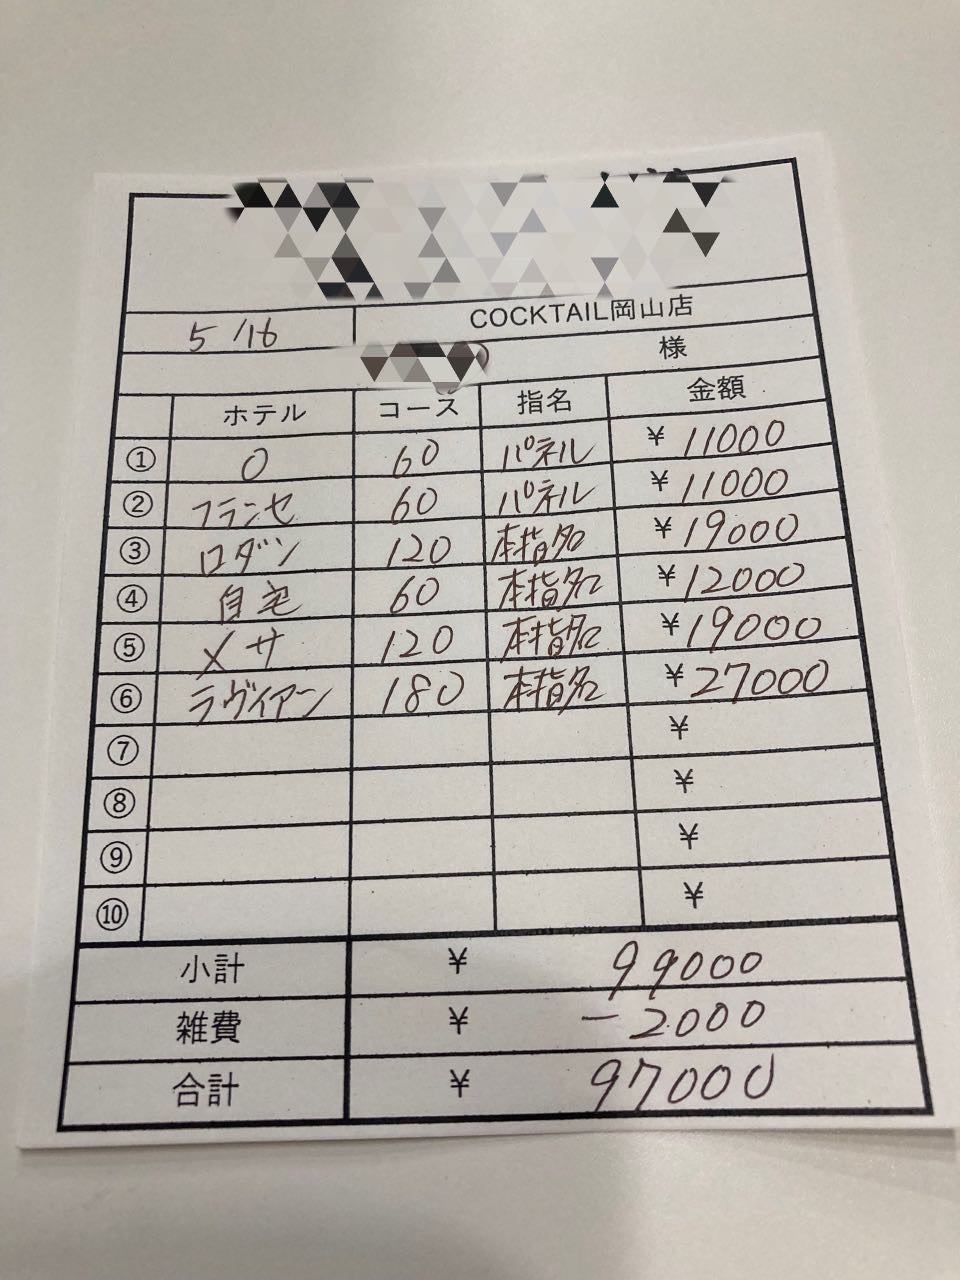 COCKTAIL岡山店
5/16
様
ホテル コース 指名 金額
① O 60 パネル ¥11000
② フランセ 60 パネル ¥11000
③ ロダン 120 本指名 ¥19000
④ 自宅 60 本指名 ¥12000
⑤ メサ 120 本指名 ¥19000
⑥ ラヴィアン 180 本指名 ¥27000
⑦ ¥
⑧ ¥
⑨ ¥
⑩ ¥
小計 ¥ 99000
雑費 ¥ -2000
合計 ¥ 97000